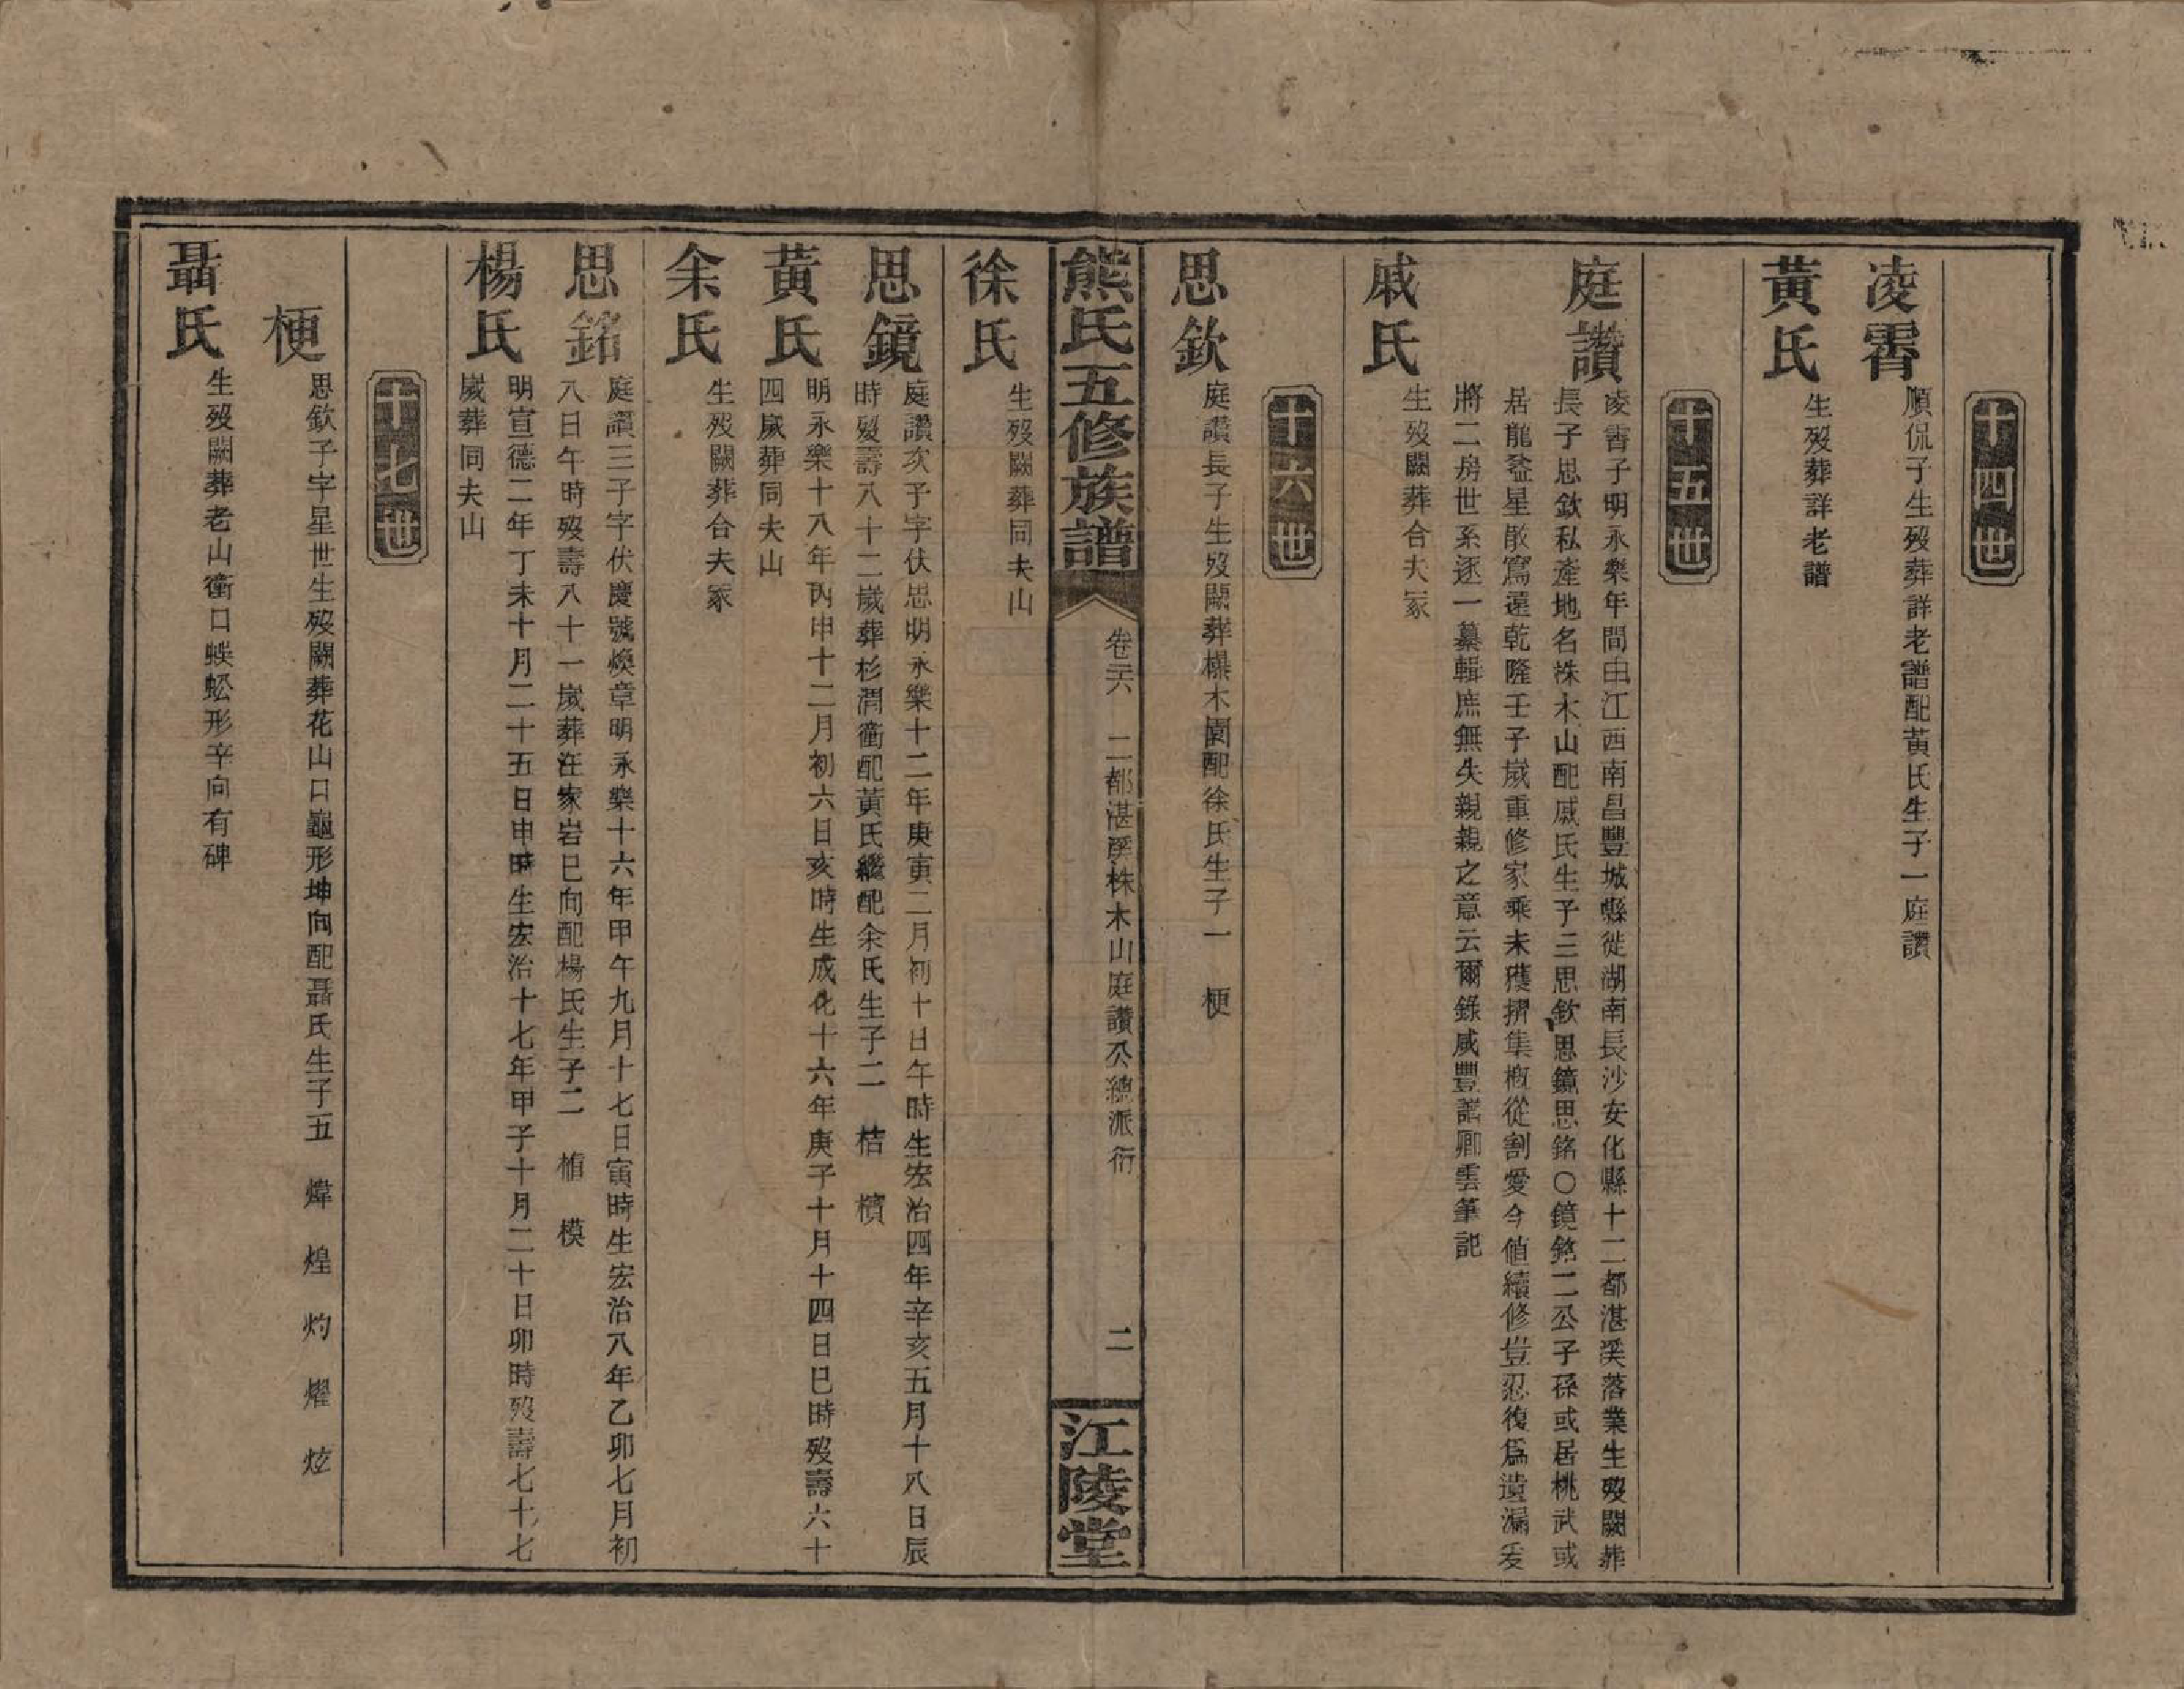 十四世
凌霄
順侃子生歿葬詳老譜配黃氏生子一庭讚
黃氏
生歿葬詳老譜
十五世
庭讚
凌霄子明永樂年間由江西南昌豐城縣徙湖南長沙安化縣十二都湛溪落業生歿闕葬
長子思欽私產地名株木山配戚氏生子三思欽思鏡思銘○鏡銘二公子孫或居桃武或
居龍益星散寫遠乾隆壬子歲重修家乘未獲搢集槪從割愛今値續修豈忍復爲遺漏爰
將二房世系逐一纂輯庶無失親親之意云爾錄咸豐譜卿雲筆記
戚氏
生歿闕葬合夫冢
十六世
思欽
庭讚長子生歿闕葬樑木園配徐氏生子一 梗
熊氏五修族譜
卷六 二都湛溪株木山庭讚公總派衍
二
江陵堂
徐氏
生歿闕葬同夫山
思鏡
庭讚次子字伏思明永樂十二年庚寅二月初十日午時生宏治四年辛亥五月十八日辰
時歿壽八十二歲葬杉渭衝配黃氏繼配余氏生子二 桔 檳
黃氏
明永樂十八年丙申十二月初六日亥時生成化十六年庚子十月十四日巳時歿壽六十
四歲葬同夫山
余氏
生歿闕葬合夫冢
思銘
庭讚三子字伏慶號煥章明永樂十六年甲午九月十七日寅時生宏治八年乙卯七月初
八日午時歿壽八十一歲葬汪家岩巳向配楊氏生子二 楦 模
楊氏
明宣德二年丁未十月二十五日申時生宏治十七年甲子十月二十日卯時歿壽七十七
歲葬同夫山
十七世
梗
思欽子字星世生歿闕葬花山口龜形坤向配聶氏生子五 煒 煌 灼 燿 炫
聶氏
生歿闕葬老山衝口蜈蚣形辛向有碑